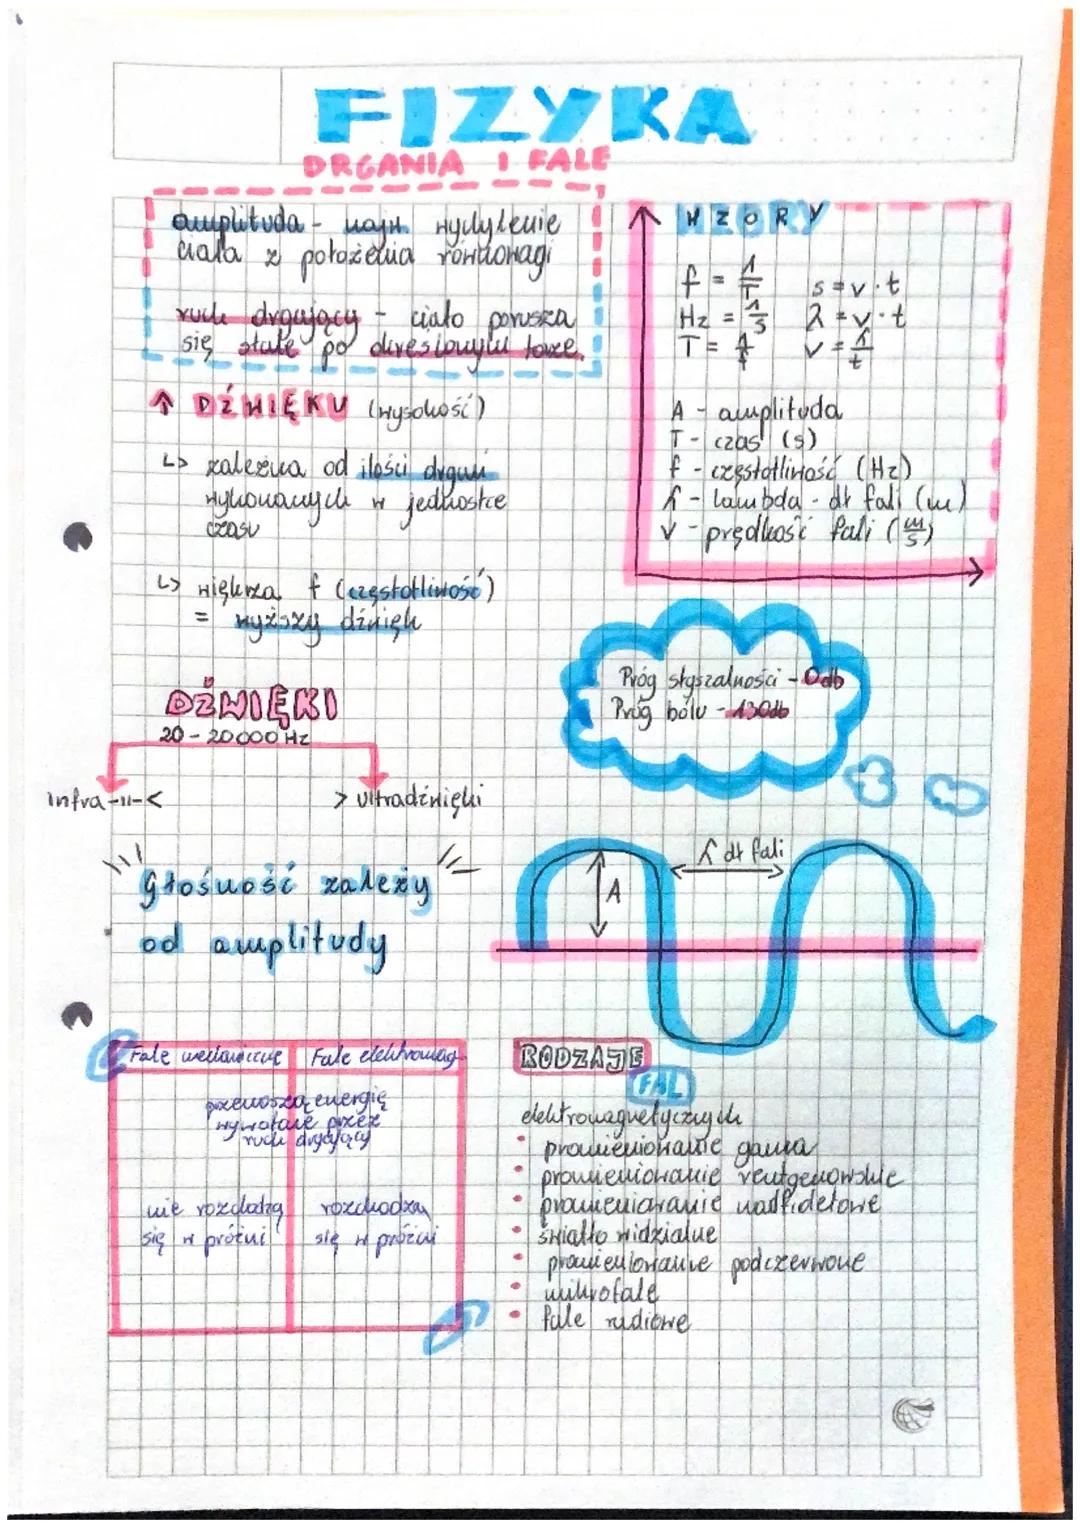 FIZYKA
DRGANIA I FALE
amplituda - najw. wychylenie
ciała z położenia równowagi
ruch drgający - ciało porusza
się stale po określonym torze.
↑ DŹWIĘKU (wysokość)
↳ zależna od ilości drgań
wykonanych w jednostce
czasu
↳ większa f (częstotliwość)
= wyższy dźwięk
WZORY
f = 1/T s = v · t
Hz = 1/s λ = v · t
T = 1/f v = λ/t
A - amplituda
T - czas (s)
f - częstotliwość (Hz)
λ - lambda - dł fali (m)
v - prędkość fali (m/s)
Próg słyszalności - 0db
Próg bólu - 130db
DŹWIĘKI
20 - 20000 Hz
infra -11- <
> ultradźwięki
Głośność zależy
od amplitudy
λ dł fali
A
Fale mechaniczne Fale elektromag
przenoszą energię
wywołane przez
ruch drgający
nie rozchodzą
się w próżni
rozchodzą
się w próżni
RODZAJE
FAL
elektromagnetycznych
• promieniowanie gamma
• promieniowanie rentgenowskie
• promieniowanie nadfioletowe
• światło widzialne
• promieniowanie podczerwone
• mikrofale
• fale radiowe